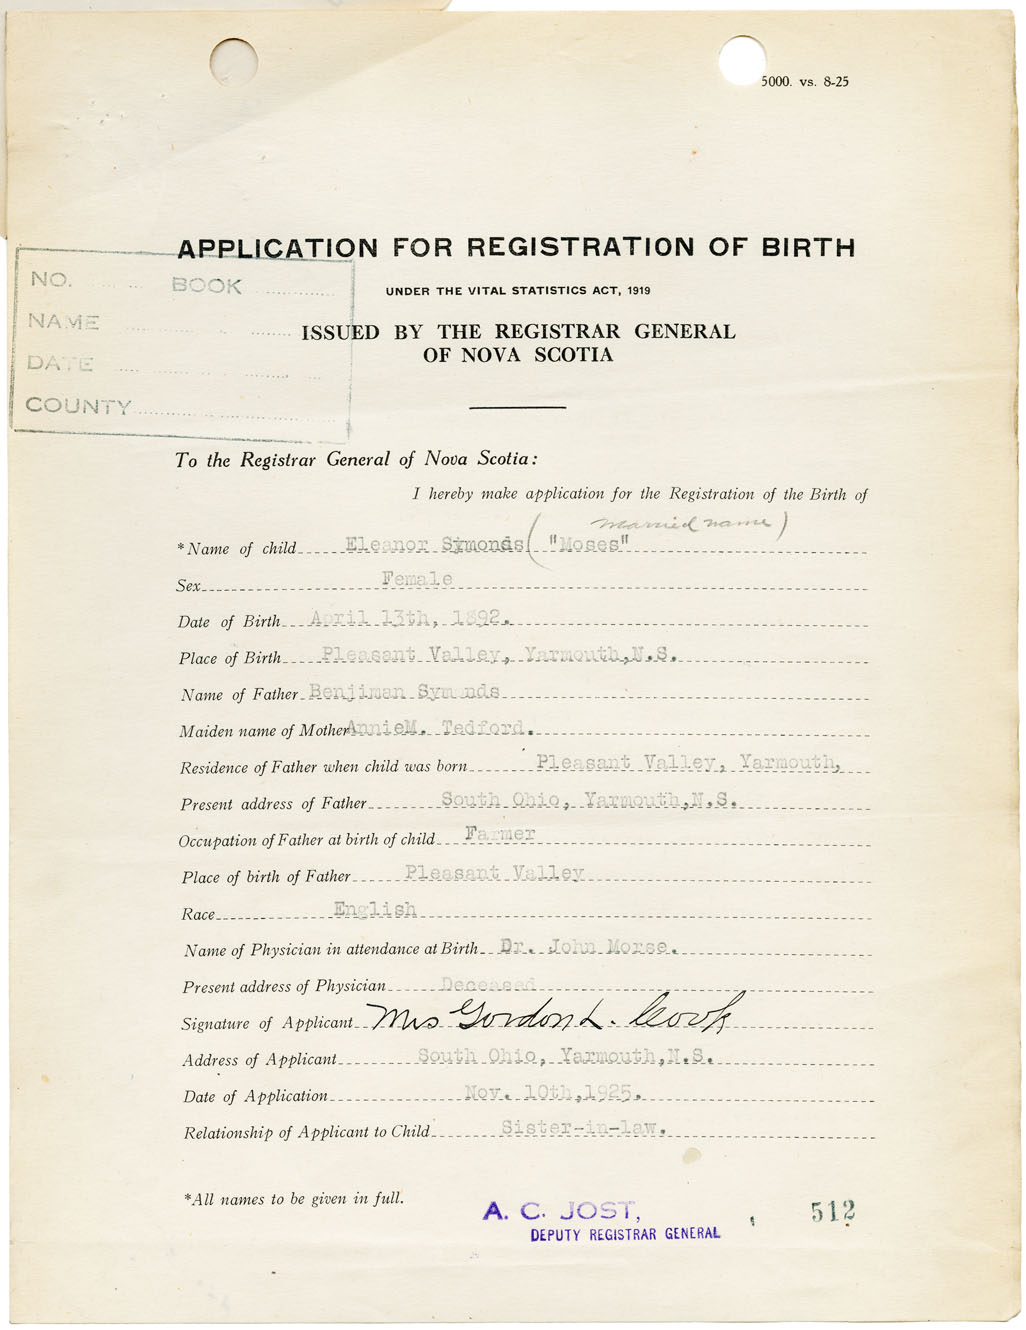 5000. vs. 8-25
APPLICATION FOR REGISTRATION OF BIRTH
NO. BOOK
UNDER THE VITAL STATISTICS ACT, 1919
NAME
ISSUED BY THE REGISTRAR GENERAL
OF NOVA SCOTIA
DATE
COUNTY
To the Registrar General of Nova Scotia:
I hereby make application for the Registration of the Birth of
married name)
*Name of child Eleanor Symonds ( "Moses"
Sex Female
Date of Birth April 13th, 1892.
Place of Birth Pleasant Valley, Yarmouth,N.S.
Name of Father Benjiman Symonds
Maiden name of Mother AnnieM. Tedford.
Residence of Father when child was born Pleasant Valley, Yarmouth,
Present address of Father South Ohio, Yarmouth,N.S.
Occupation of Father at birth of child Farmer
Place of birth of Father Pleasant Valley
Race English
Name of Physician in attendance at Birth Dr. John Morse.
Present address of Physician Deceased
Signature of Applicant Mrs Gordon L. Cook
Address of Applicant South Ohio, Yarmouth,N.S.
Date of Application Nov. 10th,1925.
Relationship of Applicant to Child Sister-in-law.
*All names to be given in full.
A. C. JOST,
DEPUTY REGISTRAR GENERAL
512